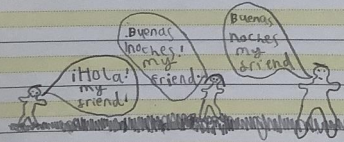 ¡Hola!
my
friend!
.Buenas
noches!
my
friend
Buenas
noches
my
friend